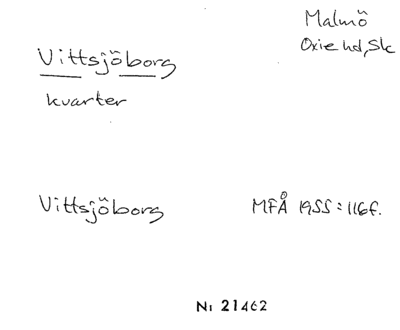 Malmö
Oxie hd, Sk
Vittsjöborg
kvarter
Vittsjöborg MFÅ 1955:116f.
Nr 21462